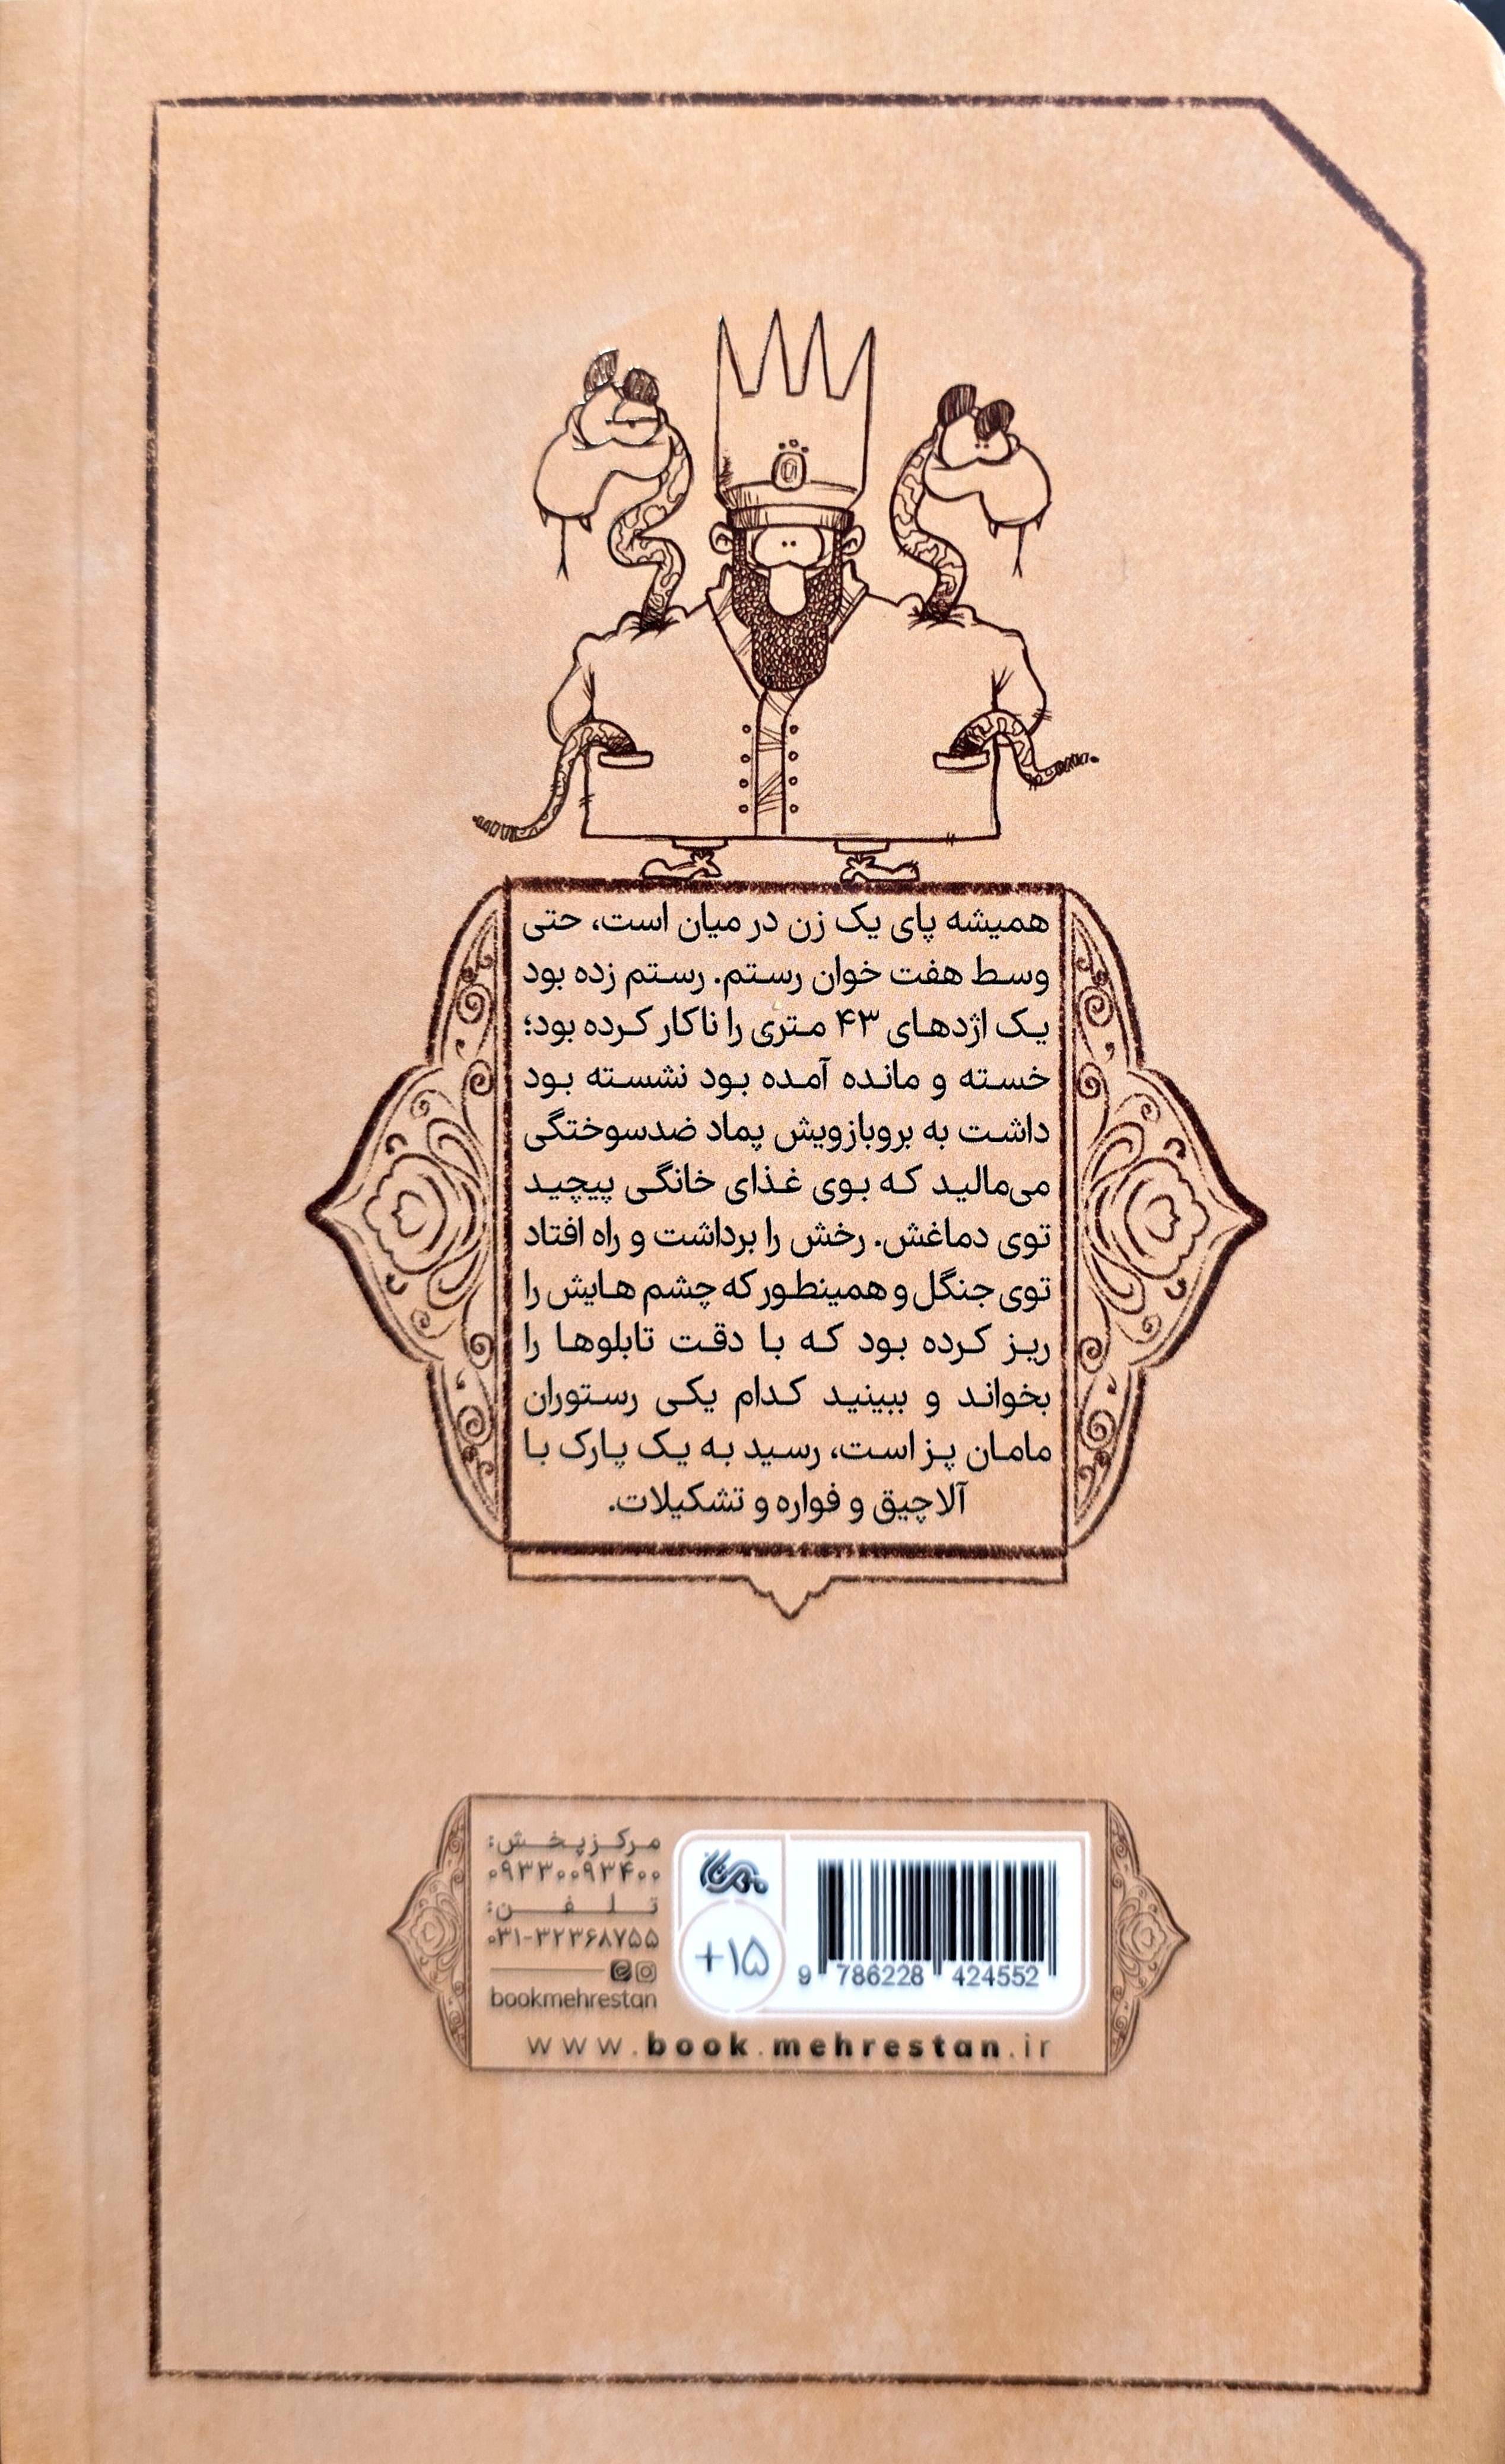 همیشه پای یک زن در میان است، حتی
وسط هفت خوان رستم. رستم زده بود
یک اژدهای ۴۳ متری را ناکار کرده بود؛
خسته و مانده آمده بود نشسته بود
داشت به بروبازویش پماد ضدسوختگی
می‌مالید که بوی غذای خانگی پیچید
توی دماغش. رخش را برداشت و راه افتاد
توی جنگل و همینطور که چشم هایش را
ریز کرده بود که با دقت تابلوها را
بخواند و ببینید کدام یکی رستوران
مامان پز است، رسید به یک پارک با
آلاچیق و فواره و تشکیلات.
مرکز پخش:
۰۹۳۳۰۰۹۳۴۰۰
تلفن:
۰۳۱-۳۲۳۶۸۷۵۵
bookmehrestan
مهرستان
+۱۵
9 786228 424552
www.book.mehrestan.ir